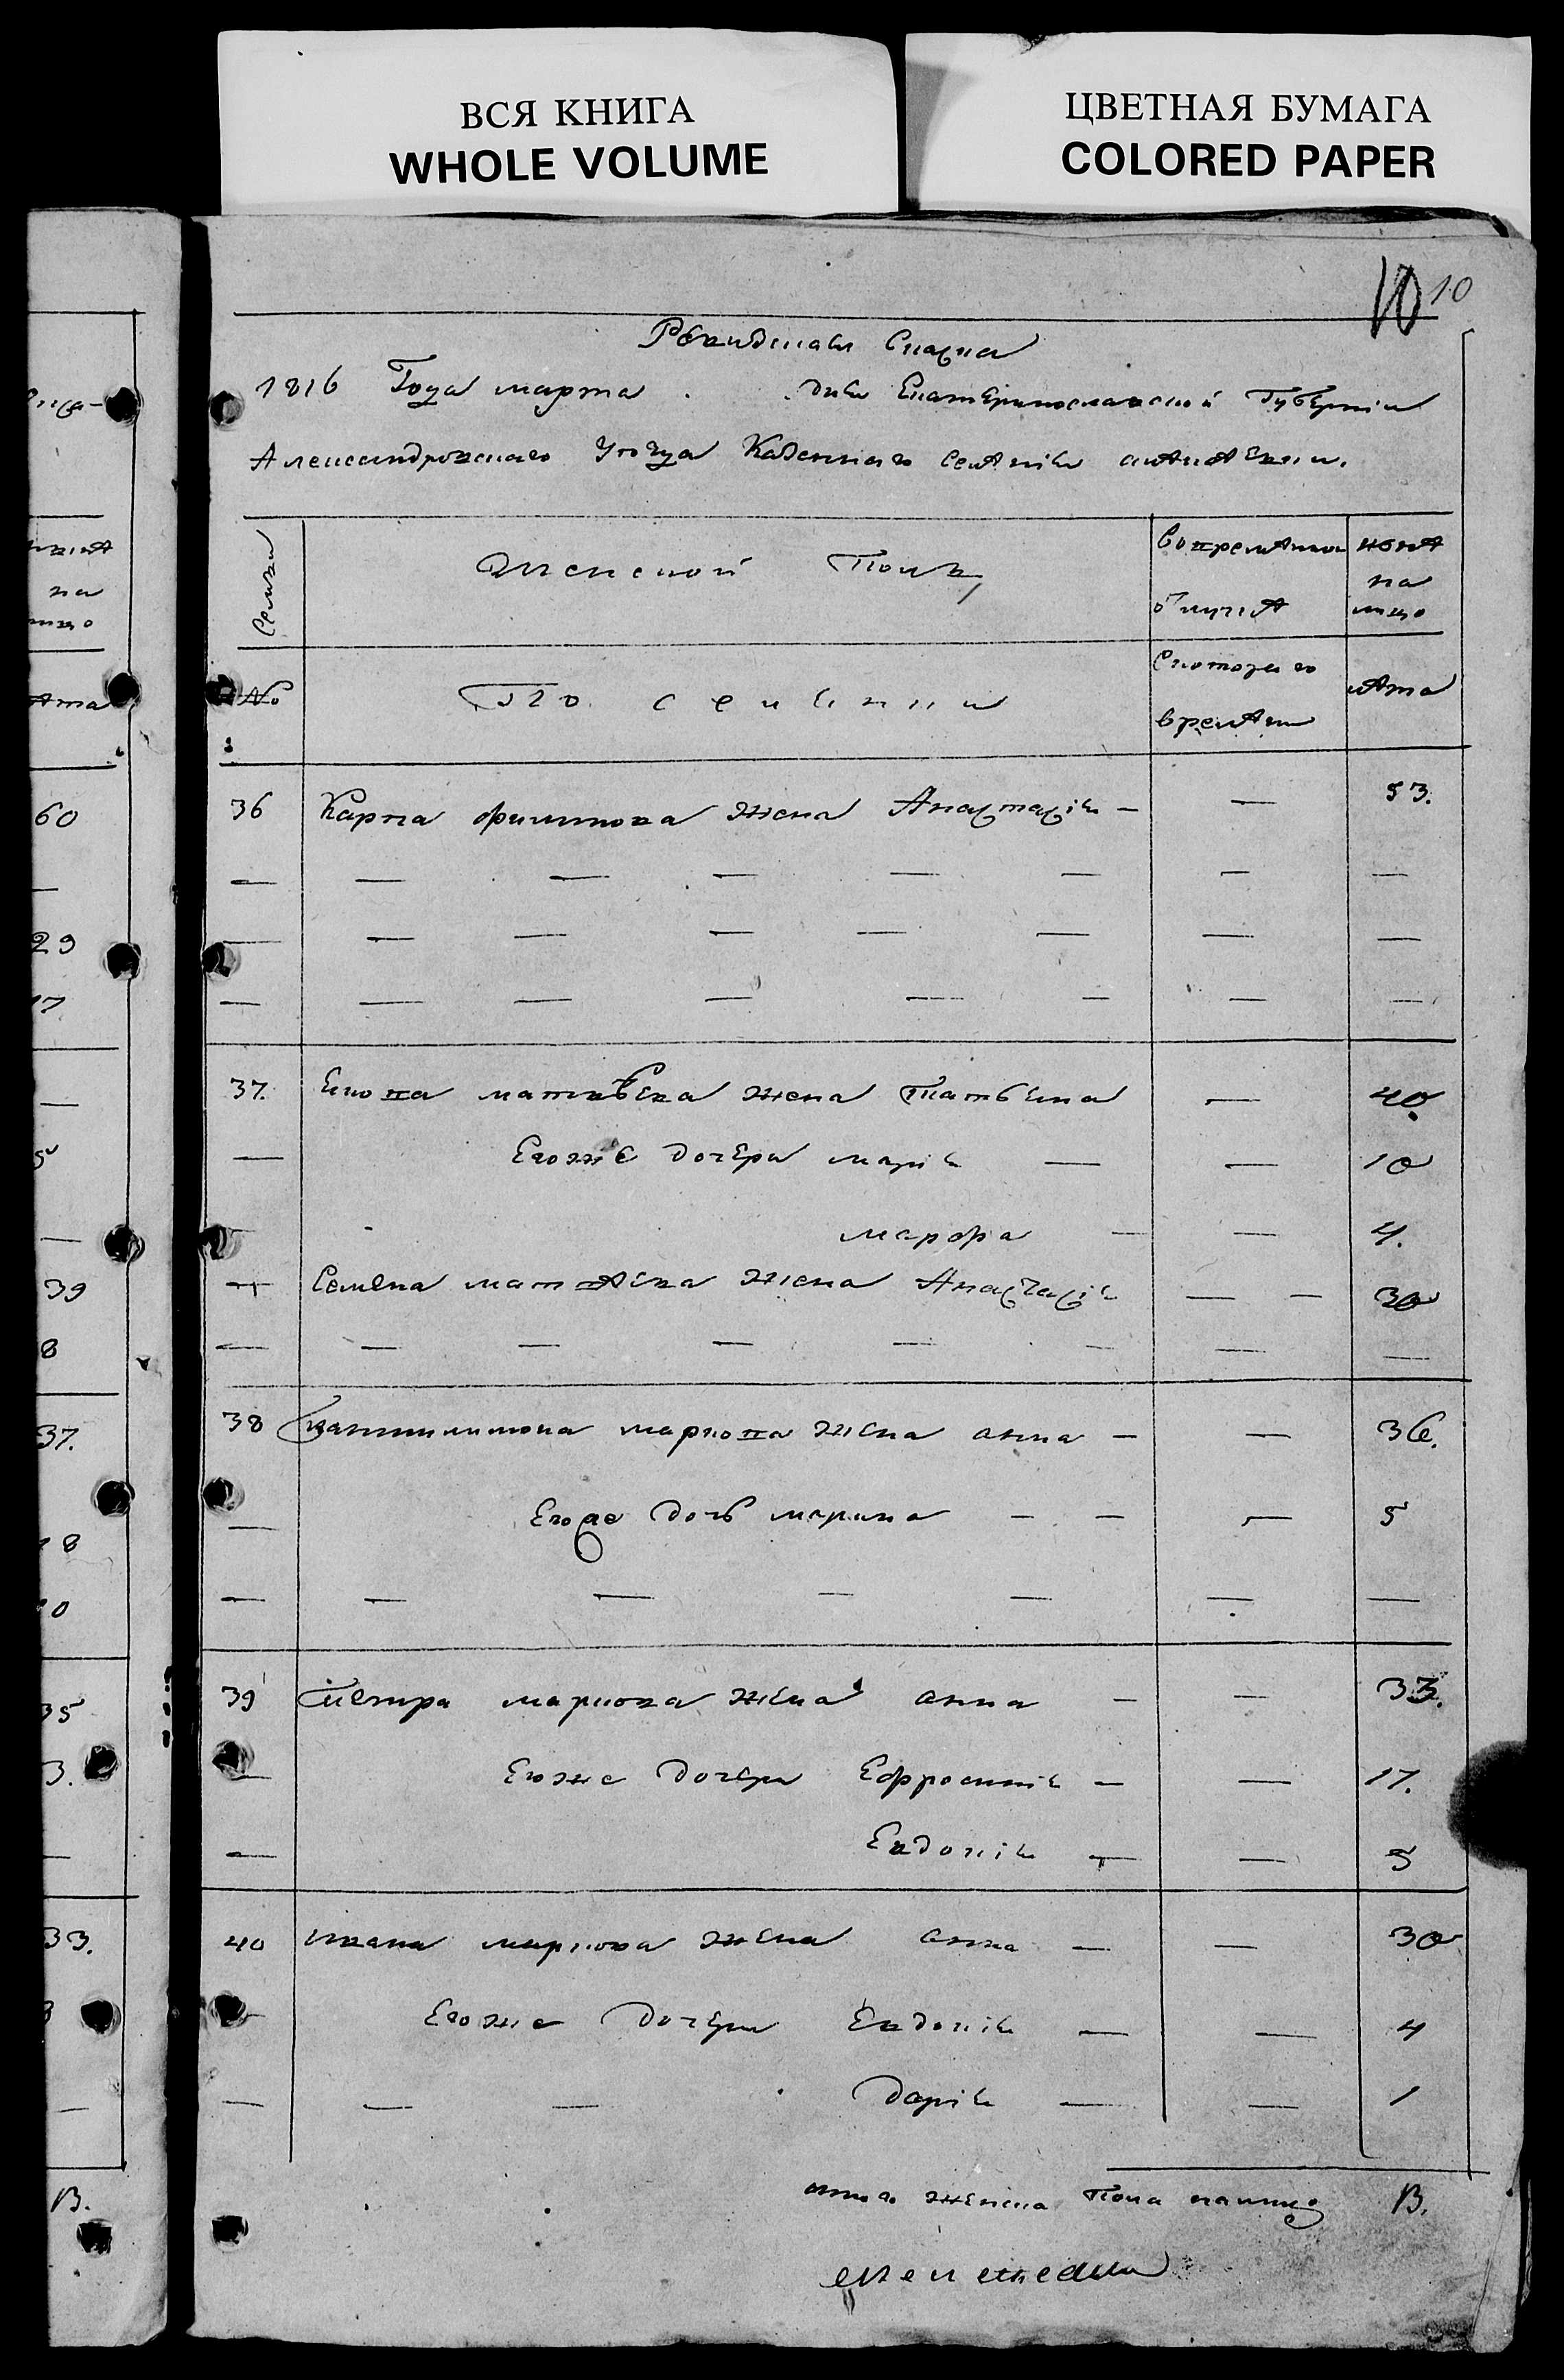 ВСЯ КНИГА
WHOLE VOLUME
ЦВЕТНАЯ БУМАГА
COLORED PAPER
10 10
Ревидская Сказка
1816 Года марта дня Екатеринославской Губернии
Александровскаго Уѣзда Казеннаго селѣнія
Семьи
Женской Полъ,
во времѣнной отлучкѣ
нынѣ на лицо
№
С котораго времѣни
лѣта
36 Карпа филипова жена Анастасія — — 53.
— — — — — — — —
— — — — — — — —
— — — — — — — —
37. Якова матвѣева жена Татьяна — 40.
— Егоже дочери марія — — 10
марфа — — 4.
— Семена матвѣева жена Анастасія — — 30
— — — — — — — —
38 Пантилимона маркова жена анна — — 36.
— Егоже дочь марина — — — 5
— — — — — — —
39 Петра маркова жена анна — — 33.
— Егоже дочери Ефросинія — — 17.
— Евдокія — — 5
40 ивана маркова жена анна — — 30
— Егоже дочери Евдокія — — 4
— — — Дарія — — 1
итого женска Пола налицо 13.
60
—
29
17
—
5
—
39
8
37.
18
10
35
3.
—
33.
—
13.